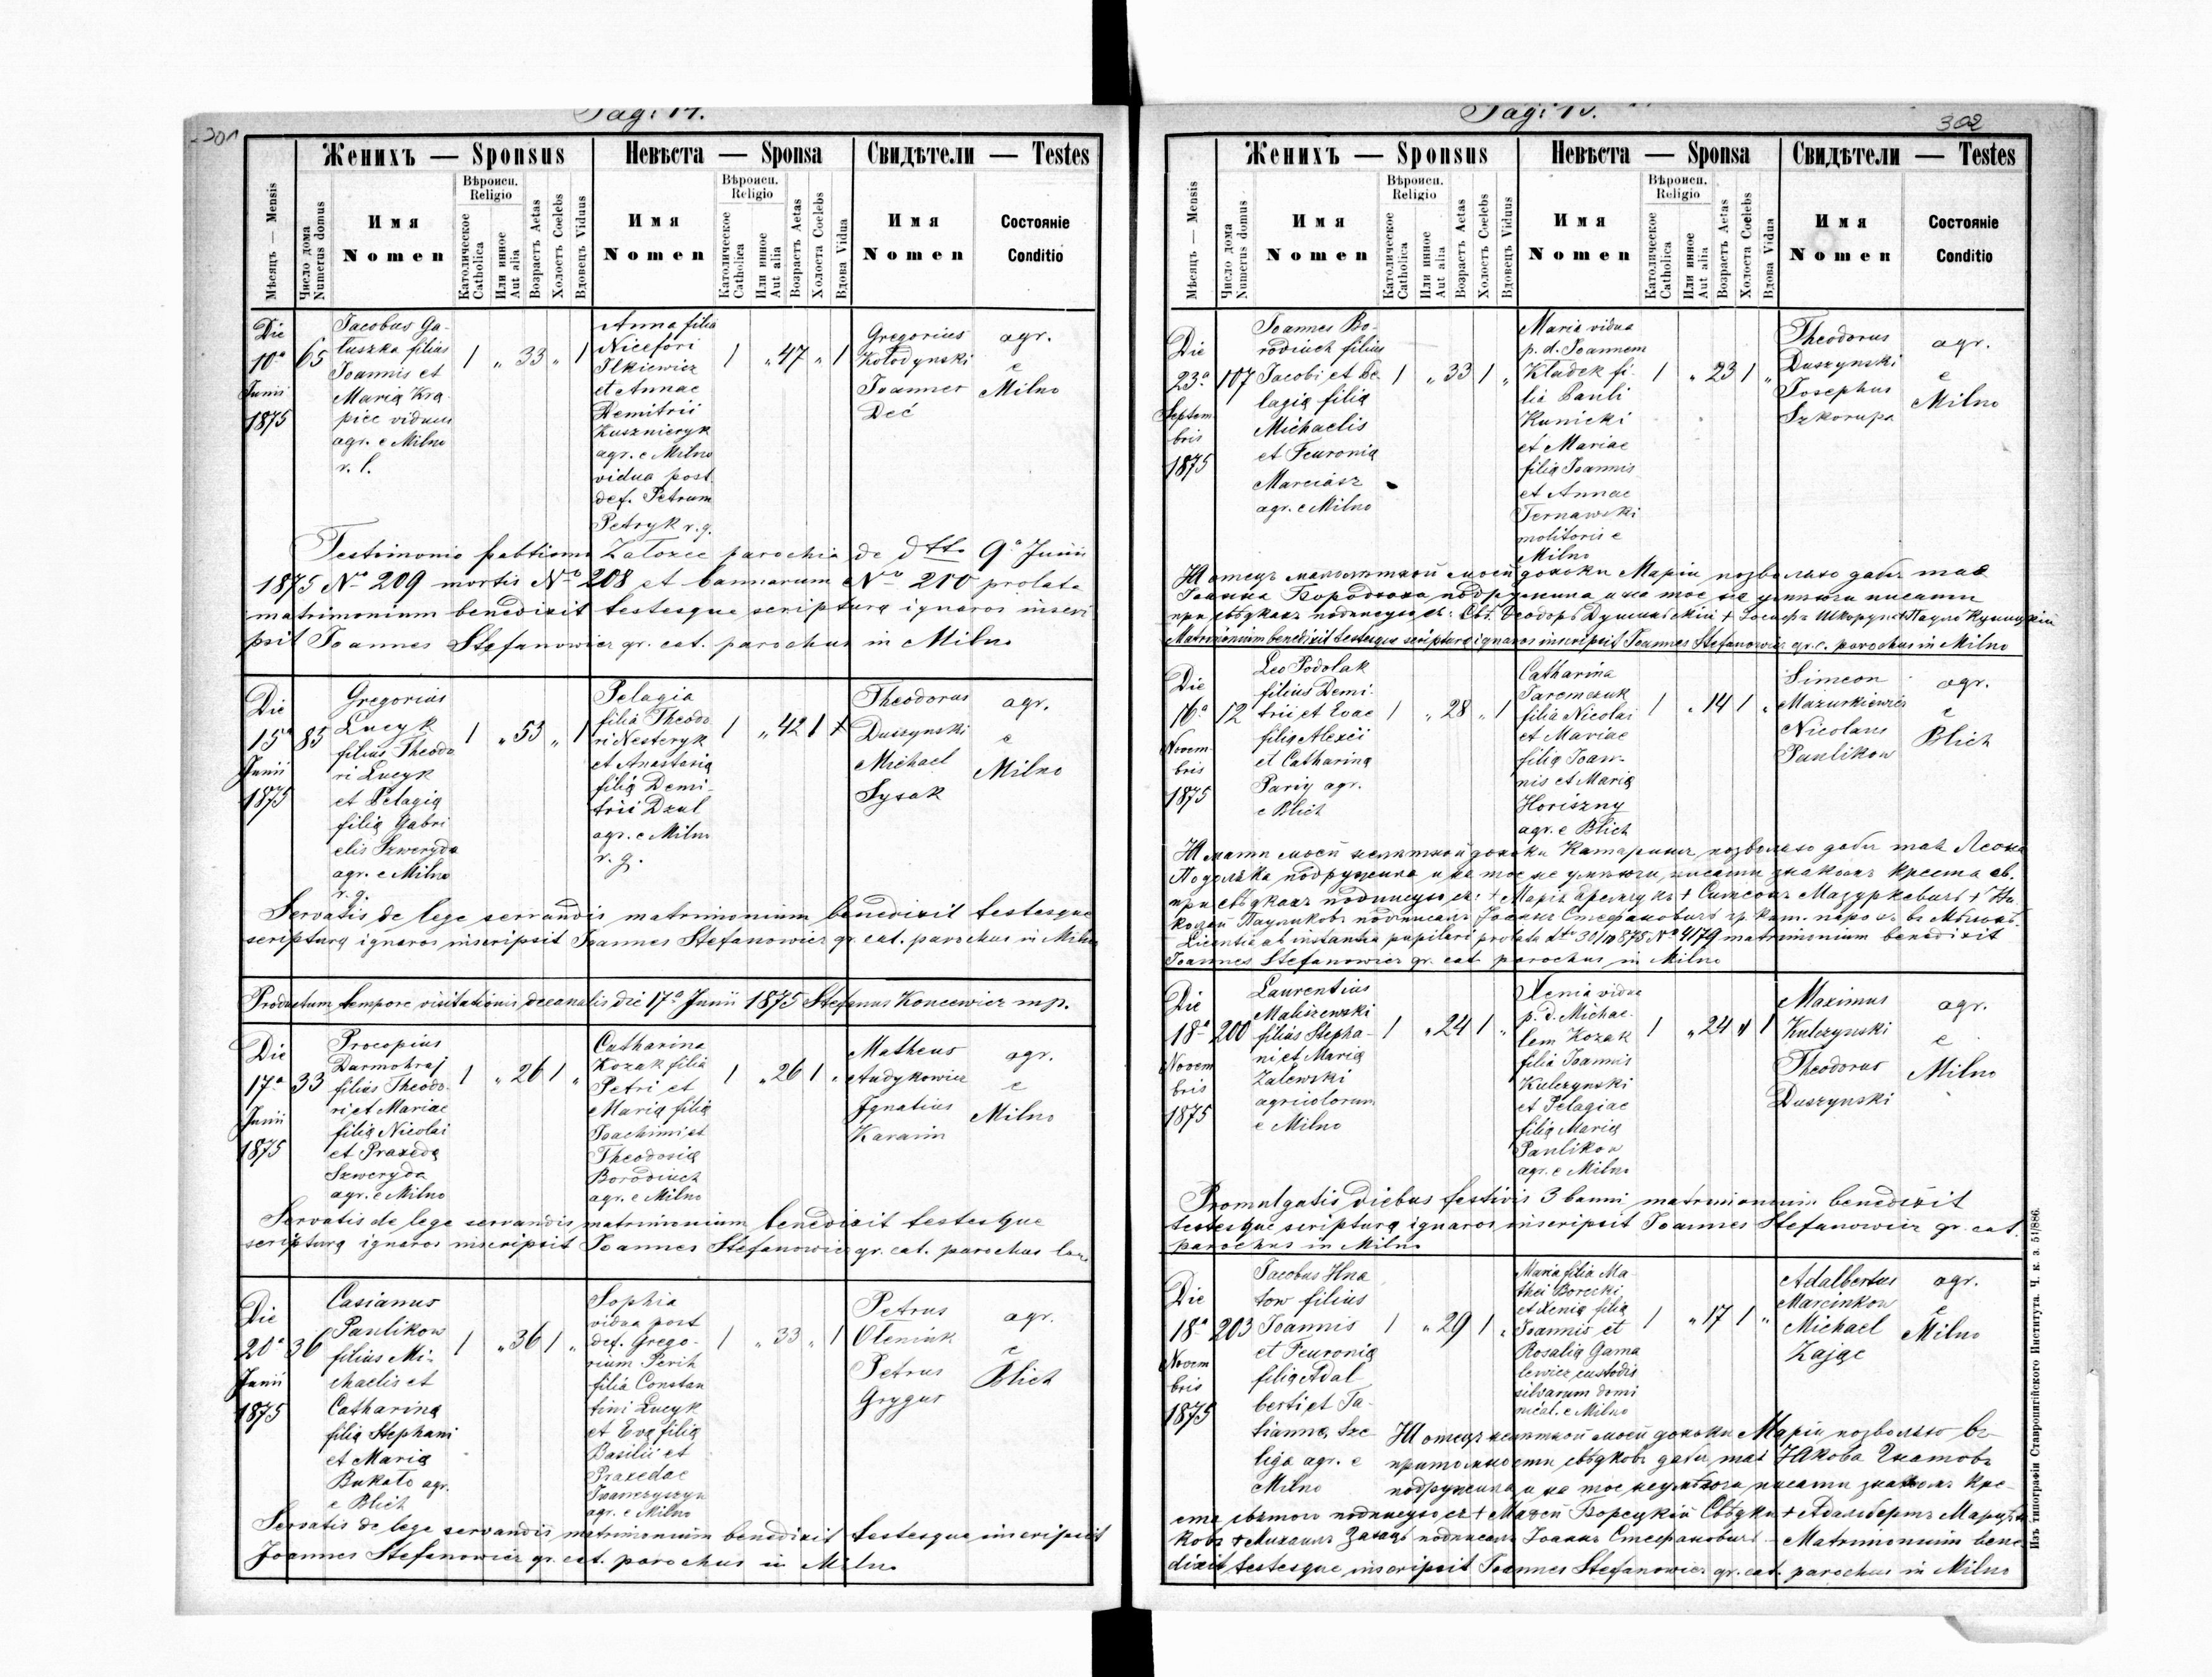 301
Pag: 14.
Женихъ — Sponsus
Невѣста — Sponsa
Свидѣтели — Testes
Мѣсяцъ — Mensis
Число дома
Numerus domus
Имя
Nomen
Вѣроисп.
Religio
Католическое
Catholica
Или инное
Aut alia
Возрастъ Aetas
Холостъ Coelebs
Вдовецъ Viduus
Имя
Nomen
Вѣроисп.
Religio
Католическое
Catholica
Или инное
Aut alia
Возрастъ Aetas
Холоста Coelebs
Вдова Vidua
Имя
Nomen
Состоянiе
Conditio
Die
10ª
Junii
1875
65
Jacobus Ga-
luszka filius
Joannis et
Marią Kra-
pice viduus
agr. e Milno
r. l.
1 „ 33 „ 1
Anna filia
Nicefori
Ilkiewicz
et Annae
Demitrii
Kusznieryk
agr. e Milno
vidua post.
def. Petrum
Petryk r. g.
1 „ 47 „ 1
Gregorius
Kołodynski
Joannes
Deć
agr.
e
Milno
Testimonio Załozce parochia de dtto 9ª Junii
1875 Nº 209 mortis Nº 208 et bannarum Nº 210 prolato
matrimonium benedixit testesque scripturą ignaros inscri
psit Joannes Stefanowicz gr. cat. parochus in Milno
Die
15ª
Junii
1875
85
Gregorius
Lucyk
filius Theodo
ri Lucyk
et Pelagią
filią Gabri
elis Szweryda
agr. e Milno
r. g.
1 „ 53 „ 1
Pelagia
filia Theodo
ri Nesteryk
et Anastasią
filią Demi-
trii Dzul
agr. e Milno
r. g.
1 „ 42 1
Theodorus
Duszynski
Michael
Sysak
agr.
e
Milno
Servatis de lege servandis matrimonium benedixit testesque
scripturą ignaros inscripsit Joannes Stefanowicz gr. cat. parochus in Milno
Productum tempore visitationis decanalis die 17ª Junii 1875 Stefanus Koncewicz mp.
Die
17ª
Junii
1875
33
Procopius
Darmohraj
filius Theodo-
ri et Mariae
filią Nicolai
et Praxedą
Szweryda
agr. e Milno
1 „ 26 1 „
Catharina
Kozak filia
Petri et
Marią filią
Joachimi et
Theodosią
Borodiuch
agr. e Milno
1 „ 26 1 „
Matheus
Audykowicz
Ignatius
Karaim
agr.
e
Milno
Servatis de lege servandis matrimonium benedixit testesque
scripturą ignaros inscripsit Joannes Stefanowicz gr. cat. parochus loci
Die
20ª
Junii
1875
36
Casianus
Paulikow
filius Mi-
chaelis et
Catharina
filią Stephani
et Marią
Bukało agr.
e Blich
1 „ 36 1 „
Sophia
vidua post
def. Grego-
rium Perih
filia Constan
tini Lucyk
et Evą filią
Basilii et
Praxedae
Iwanczyszyn
agr. e Milno
1 „ 33 „ 1
Petrus
Oleniuk
Petrus
Grygus
agr.
e
Blich
Servatis de lege servandis matrimonium benedixit testesque inscripsit
Joannes Stefanowicz gr. cat. parochus in Milno
Pag: 15.
302
Женихъ — Sponsus
Невѣста — Sponsa
Свидѣтели — Testes
Мѣсяцъ — Mensis
Число дома
Numerus domus
Имя
Nomen
Вѣроисп.
Religio
Католическое
Catholica
Или инное
Aut alia
Возрастъ Aetas
Холостъ Coelebs
Вдовецъ Viduus
Имя
Nomen
Вѣроисп.
Religio
Католическое
Catholica
Или инное
Aut alia
Возрастъ Aetas
Холоста Coelebs
Вдова Vidua
Имя
Nomen
Состоянiе
Conditio
Die
23ª
Septem
bris
1875
107
Joannes Bo-
rodiuch filius
Jacobi et Pe-
lagią filią
Michaelis
et Feuronią
Marciasz
agr. e Milno
1 „ 33 1 „
Maria vidua
p. d. Joannem
Kładek fi-
lia Pauli
Kunicki
et Mariae
filią Joannis
et Annae
Ternawski
molitoris e
Milno
1 „ 23 1 „
Theodorus
Duszynski
Josephus
Szkorupa
agr.
e
Milno
Я отець малолѣтной моей доньки Марiи позволяю дабы таа
Іоанна Бородюха подружила и на тое не умѣючи писати
при свѣдкахъ подписуюсь: Свѣ. Ѳеодоръ Душиньскiй + Іосифъ Шкорупа + Павло Куницкiй
Matrimonium benedixit testesque scripturą ignaros inscripsit Joannes Stefanowicz gr. c. parochus in Milno
Die
16ª
Novem
bris
1875
12
Leo Podolak
filius Demi-
trii et Evae
filią Alexii
et Catharina
Pariy agr.
e Blich
1 „ 28 „ 1
Catharina
Jaremczuk
filia Nicolai
et Mariae
filią Joan-
nis et Marią
Horiszny
agr. e Blich
1 „ 14 1 „
Simeon
Mazurkiewicz
Nicolaus
Paulikow
agr.
e
Blich
Я мати моей нелѣтной доньки Катарины позволяю дабы таа Леона
Подоляка подружила и на тое не умѣючи писати знакомъ Креста св.
при свѣдкахъ подписуюсь: + Марiя Яремчукъ + Симеонъ Мазуркевичъ + Ни-
колай Пауликовъ подписалъ Іоаннъ Стефановичъ гр. кат. парохъ въ Мѣльнѣ
Licentia ab instantia pupilari prolata dto 30/10 875 Nº 4179 matrimonium benedixit
Joannes Stefanowicz gr. cat. parochus in Milno
Die
18ª
Novem
bris
1875
200
Laurentius
Maliszewski
filius Stepha-
ni et Marią
Zalewski
agricolorum
e Milno
1 „ 24 1 „
Xenia vidua
p. d. Michae-
lem Kozak
filia Joannis
Kulczynski
et Pelagiae
filią Marią
Paulikow
agr. e Milno
1 „ 24 „ 1
Maximus
Kulczynski
Theodorus
Duszynski
agr.
e
Milno
Promulgatis diebus festivis 3 banni, matrimonium benedixit
testesque scripturą ignaros inscripsit Joannes Stefanowicz gr. cat.
parochus in Milno
Die
18ª
Novem
bris
1875
203
Jacobus Hna
tow filius
Joannis
et Feuronią
filią Adal
berti et Ta-
tianną Sze-
liga agr. e
Milno
1 „ 29 1 „
Maria filia Ma-
thei Borecki
et Xenią filią
Joannis et
Rosalią Gama
lewicz custodis
silvarum domi
nical. e Milno
1 „ 17 1 „
Adalbertus
Marcinkow
Michael
Zając
agr.
e
Milno
Я отець нелѣтной моей доньки Марiи позволяю въ
притомности свѣдковъ дабы таа Якова Гнатовъ
подружила и на тое неумѣючи писати знакомъ Кре-
ста святого подписуюсь + Матей Борецкiй Свѣдки + Адальбертъ Марцѣн
ковъ + Михаилъ Заяцъ подписалъ Іоаннъ Стефановичъ Matrimonium bene
dixit testesque inscripsit Joannes Stefanowicz gr. cat. parochus in Milno
Изъ типографiи Ставропигiйского Института. Ч. к. а. 51/886.